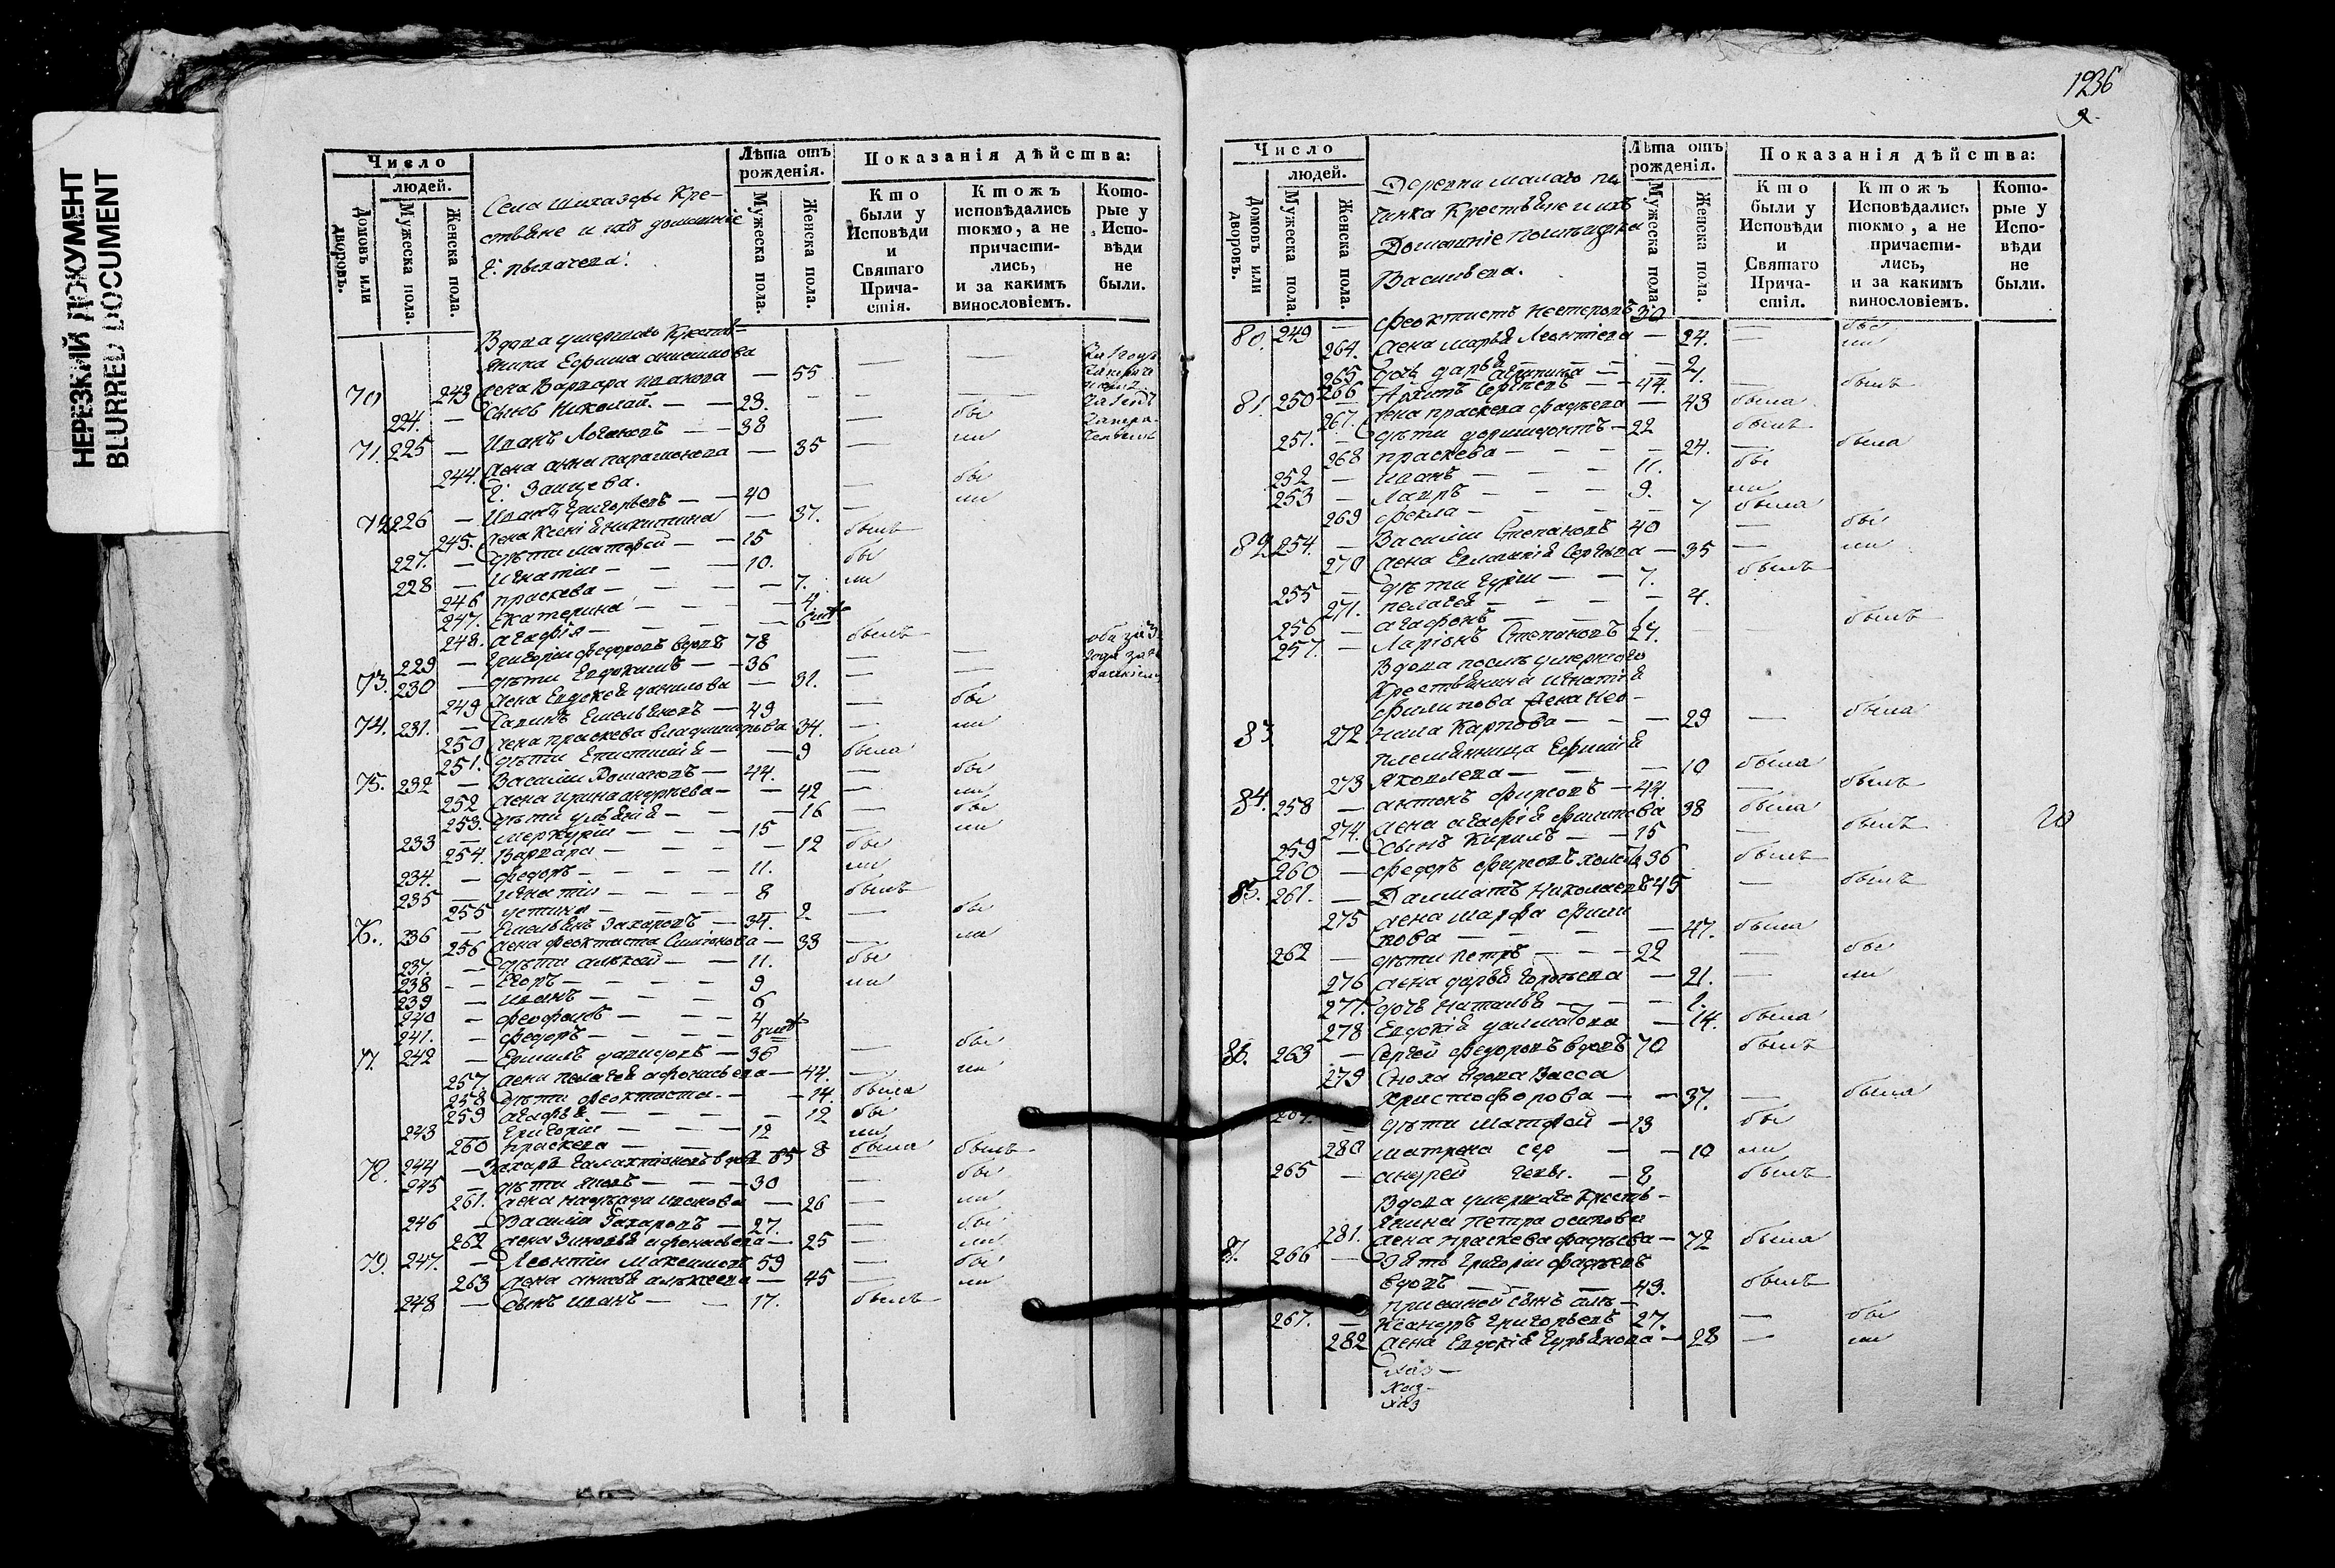 НЕРЕЗКИЙ ДОКУМЕНТ
BLURRED DOCUMENT
Число
людей.
Домовъ или дворовъ.
Мужеска пола.
Женска пола.
Села
Кре-
стьяне и ихъ домашніе
Лѣта отъ рожденія.
Мужеска пола.
Женска пола.
Показанія дѣйства:
Кто были у Исповѣди и Святаго Прича-стія.
Ктожъ исповѣдались токмо, а не причасти-лись, и за какимъ винословіемъ.
Кото-рые у Испо-вѣди не были.
Вдова умершаго Кресть-
янина Ефима
70 243 жена Варвара Иванова — 55
224. — сынъ Николай — — 23.
71. 225 — Иванъ — 38 — бы
244. жена Анна Парамонова — 35 — ли
Г. Зайцева.
72 226 — Иванъ Григорьевъ — 40 — бы
245. жена Ксенія Никитина — 37. — ли
227. — дѣти Матвей — — 15 былъ
228 — Игнатій — — — 10. бы
246 Праскева — — — 7. ли
247. Екатерина — — — 4
248. Агафія — — —
73. 229 — Григорій Федоровъ вдовъ 78 былъ
230 — дѣти Евдокимъ — 36 —
249 жена Евдокея Данилова — 31. —
74. 231. — Емельяновъ — 49 — бы
250 жена Праскева Владимирова 34. — ли
251. дѣти Епистимія — — 9 была
75. 232 — Василій Романовъ — 44. — бы
252 жена Ирина Андреева — — 42 — ли
253. дѣти — — 16 — бы
233 — Меркурій — — — 15 — ли
254. Варвара — — — — 12 бы
234. — Федоръ — — — — 11. ли
235 — Игнатій — — — 8 былъ
255 Устинья — — — — 2
76. 236 — Емельянъ Захаровъ — 34. — бы
256 жена Феоктиста Симионова — 33 — ли
237. — дѣти Алексей — — 11. бы
238 — Егоръ — — — — 9 ли
239 — Иванъ — — — 6
240 — Феофанъ — — — 4
241. — Федоръ — — —
77. 242 — Ермилъ Давидовъ — 36 — бы
257. жена Пелагея Афонасьева — 44. — ли
258 дѣти Феоктиста — — 14. была
259 Агафья — — — — 12 бы
243 — Григорій — — — 12 ли
260 Праскева — — — 8 была
78. 244 — Захаръ Галахтіоновъ вдовъ 65 былъ
245 — дѣти — — — 30 — бы
261. жена Надежда Иванова — 26 — ли
246 — Василій Захаровъ — 27. — бы
262 жена Зиновья Афонасьева — 25 — ли
79. 247. — Леонтій Максимовъ 59 — бы
263 жена Анисья Алексеева — 45 — ли
248 — сынъ Иванъ — — 17. былъ
1236
Число
людей.
Домовъ или дворовъ.
Мужеска пола.
Женска пола.
Деревни Малаго По-
чинка Крестьяне и ихъ
Домашніе помѣщика
Васильева.
Лѣта отъ рожденія.
Мужеска пола.
Женска пола.
Показанія дѣйства:
Кто были у Исповѣди и Святаго Прича-стія.
Ктожъ Исповѣдались токмо, а не причасти-лись, и за какимъ винословіемъ.
Кото-рые у Испо-вѣди не были.
80. 249 — Феоктистъ Нестеровъ 30 — бы
264. жена Марья Леонтіева — 24. — ли
265 дочь Дарья — — 2
266 Агрипина — — 4.
81. 250 — Сергѣевъ — 44. — былъ
267. жена Праскева Фадѣева — 43 была
251. — дѣти — 22 былъ
268 Праскева — — — — 24. — была
252 — Иванъ — — — 11. бы
253 — Лавръ — — — 9. ли
269 Фекла — — — — 7 была
82 254. — Василій Степановъ 40 — бы
270 жена Евланпія Сергѣева — 35 — ли
255 — дѣти Гурій — — 7. былъ
271. Пелагея — — — — 4.
256 — Агафонъ — — 1
257. — Ларіонъ Степановъ 27. — былъ
Вдова послѣ умершаго
Крестьянина Игнатія
Филипова жена Нео-
83 272 нила Карпова — — — 29 — была
племянница Ефимія
273 Яковлева — — — 10 была
84. 258 — Антонъ Фирсовъ — 44. — былъ
274. жена Агафія Филипова 38 была
259 — сынъ Кирилъ — — 15 — былъ
260 — Федоръ Фирсовъ холостъ 36 былъ
85. 261. — Далматъ Николаевъ 45 — былъ
275 жена Марфа Фили
пова — — — — 47. была
262 — дѣти Петръ — — — 22 — бы
276 жена Дарья — 21. — ли
277. дочь Наталья — — — 1.
278 Евдокія Далматова — 14. была
86. 263 — Сергей Федоровъ вдовъ 70 былъ
279 Сноха вдова Васса
Христофорова — — 37. — была
264. — дѣти Матвей — 13 бы
280 Матрена сер — — 10 ли
265 — Андрей геевы. — 8 былъ
Вдова умершаго Кресть-
янина Петра Осипова
281. жена Праскева Фадѣева — 72 была
87. 266 — Зять Григорій Фадѣевъ
вдовъ — — — 49. былъ
приемной сынъ Але-
267. — ксандръ Григорьевъ 27. — бы
282 жена Евдокія Гурьянова — 28 — ли
20